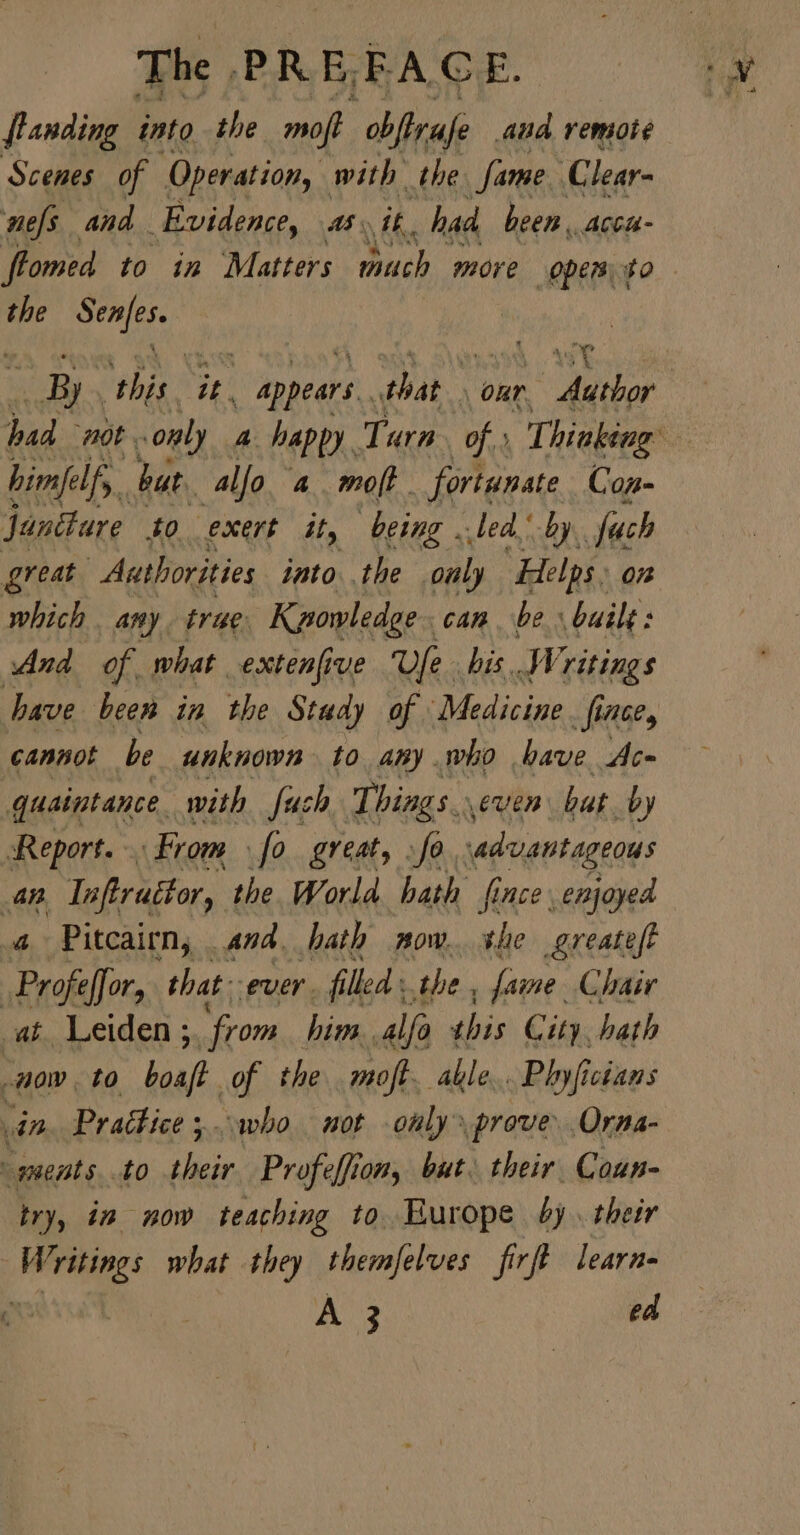 The PREFACE.
ſtanding into the moſt obſtruſe and remote
Scenes of Operation, with the ſame Clear-
neſs and Evidence, as it had been accu-
ſtomed to in Matters much more open to
the Senſes.
By this it appears that our Author
had not only a happy Turn of Thinking
himſelf, but alſo a moſt fortunate Con-
juncture to exert it, being led by ſuch
great Authorities into the only Helps on
which any true Knowledge can be built:
And of what extenſive Uſe his Writings
have been in the Study of Medicine ſince,
cannot be unknown to any who have Ac-
quaintance with ſuch Things even but by
Report. From ſo great, ſo advantageous
an Inſtructor, the World hath ſince enjoyed
a Pitcairn, and hath now the greateſt
Profeſſor, that ever filled the ſame Chair
at Leiden; from him alſo this City hath
now to boaſt of the moſt able Phyſicians
in Practice; who not only prove Orna-
ments to their Profeſſion, but their Coun-
try, in now teaching to Europe by their
Writings what they themſelves firſt learn-
A 3 ed